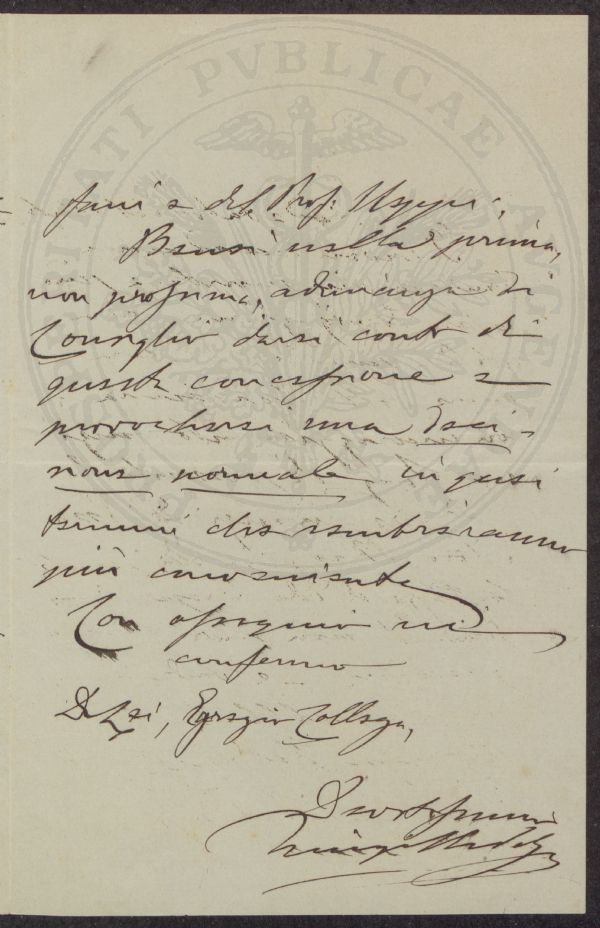 PVBLICAE
e del Prof. Uzzeni.
Bensì nella prima,
non prossima, adunanza di
Consiglio darsi conto di
questa concessione e
provocarsi una deci-
sione normale in quei
termini che sembreranno
più convenienti.
Con ossequio mi
confermo
Di Lei, Egregio Collega,
Devotissimo